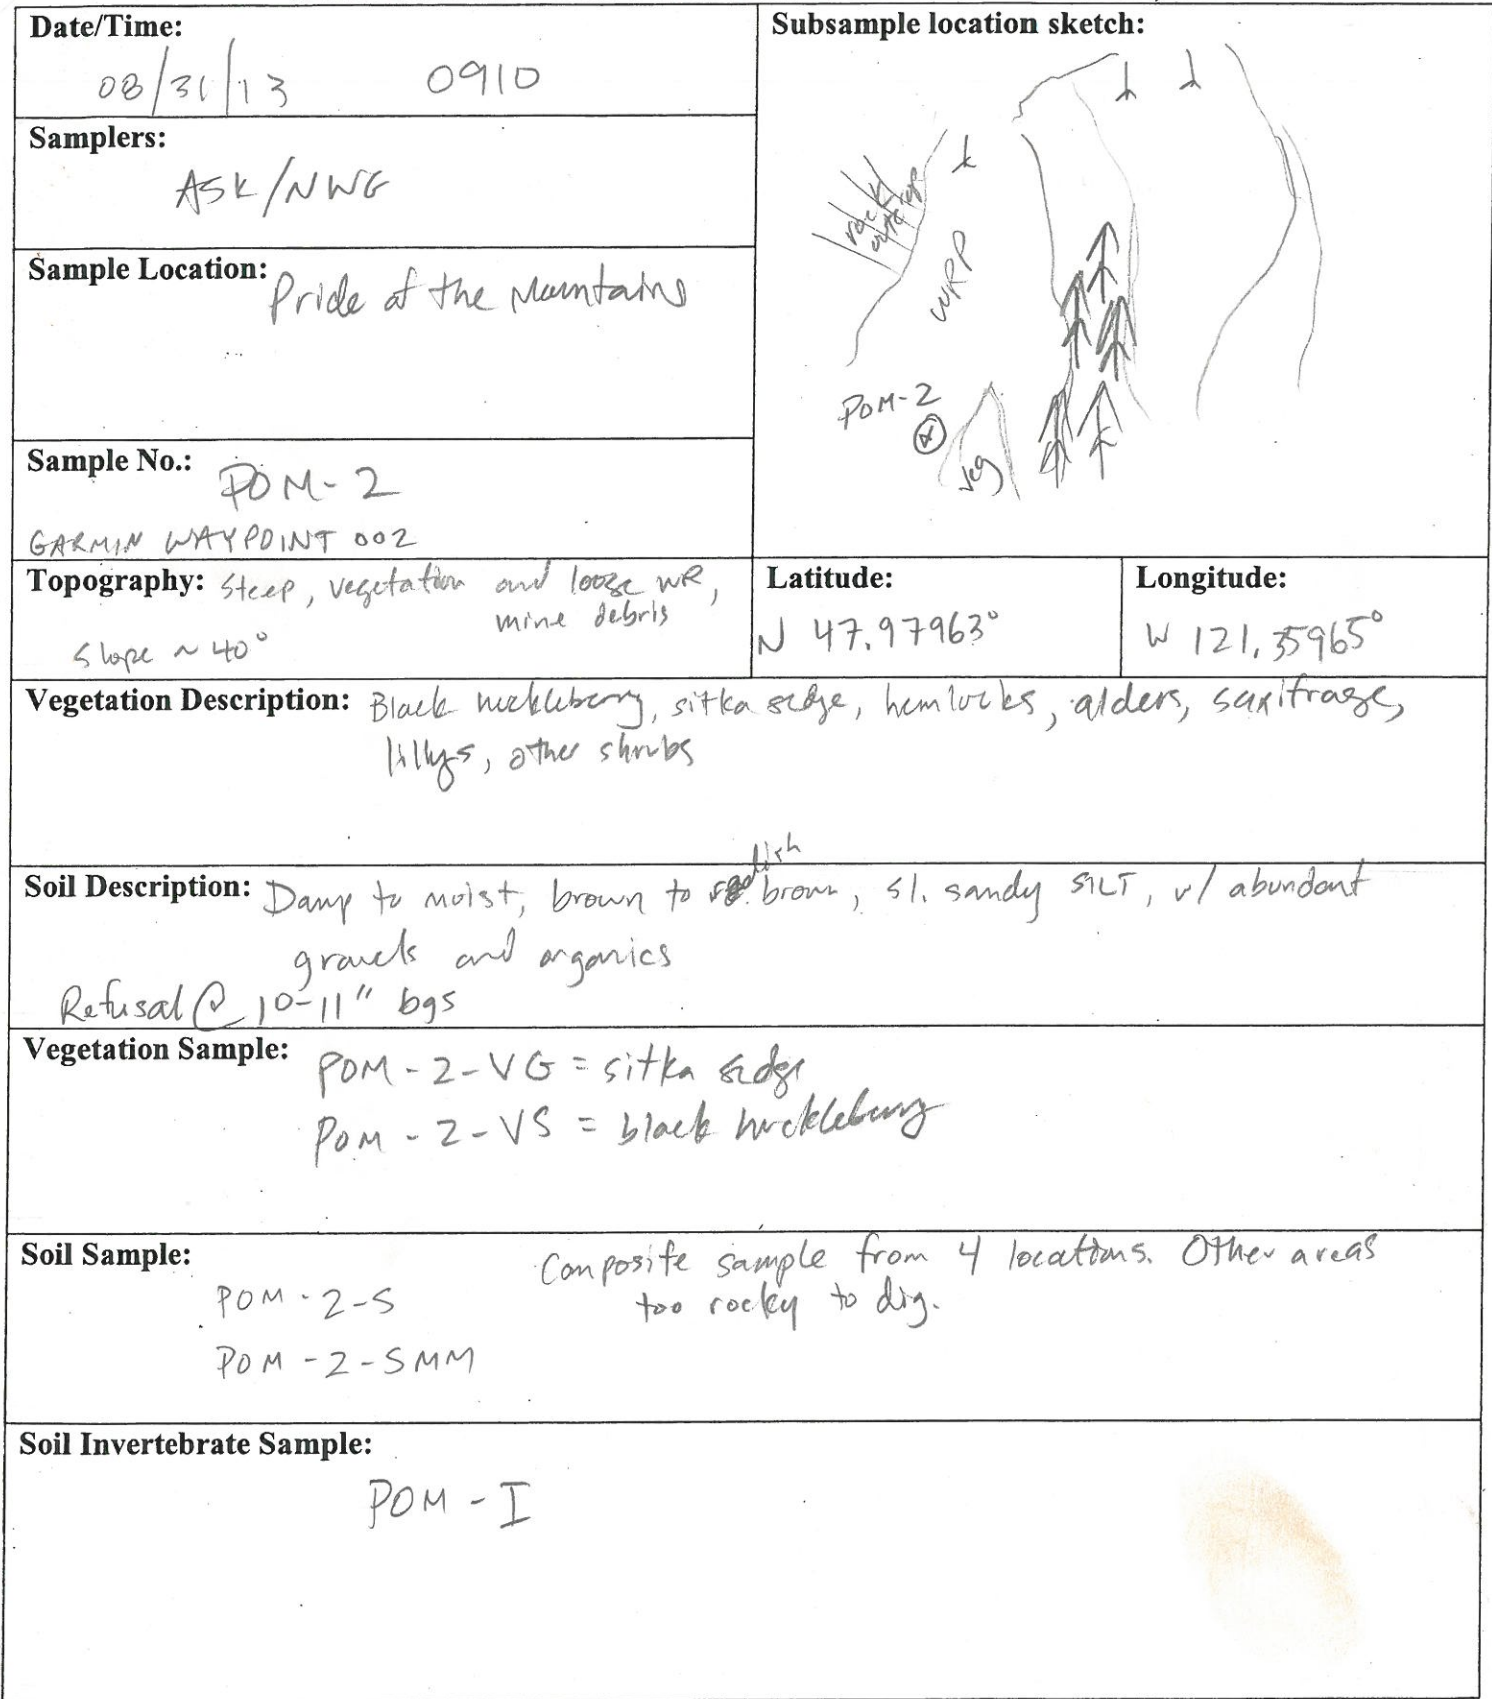 Date/Time:
08/31/13 0910
Samplers:
ASK/NWG
Sample Location: Pride of the Mountains
Sample No.: POM-2
GARMIN WAYPOINT 002
Subsample location sketch:
rock
outcrop
WRP
POM-2
veg
Topography: Steep, vegetation and loose WR,
mine debris
Slope ~ 40°
Latitude:
N 47.97963°
Longitude:
W 121.35965°
Vegetation Description: Black huckleberry, sitka sedge, hemlocks, alders, saxifrage,
lillys, other shrubs
Soil Description: Damp to moist, brown to reddish brown, sl. sandy SILT, w/ abundant
gravels and organics
Refusal @ 10-11" bgs
Vegetation Sample: POM-2-VG = sitka sedge
POM-2-VS = black huckleberry
Soil Sample:
Composite sample from 4 locations. Other areas
too rocky to dig.
POM-2-S
POM-2-SMM
Soil Invertebrate Sample:
POM-I